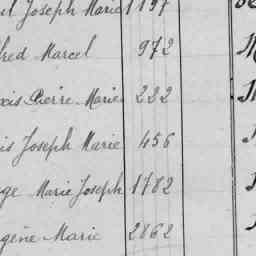 Joseph Marie 1197
fred Marcel 972
xis Pierre Marie 222
is Joseph Marie 456
ge Marie Joseph 1782
gène Marie 2862